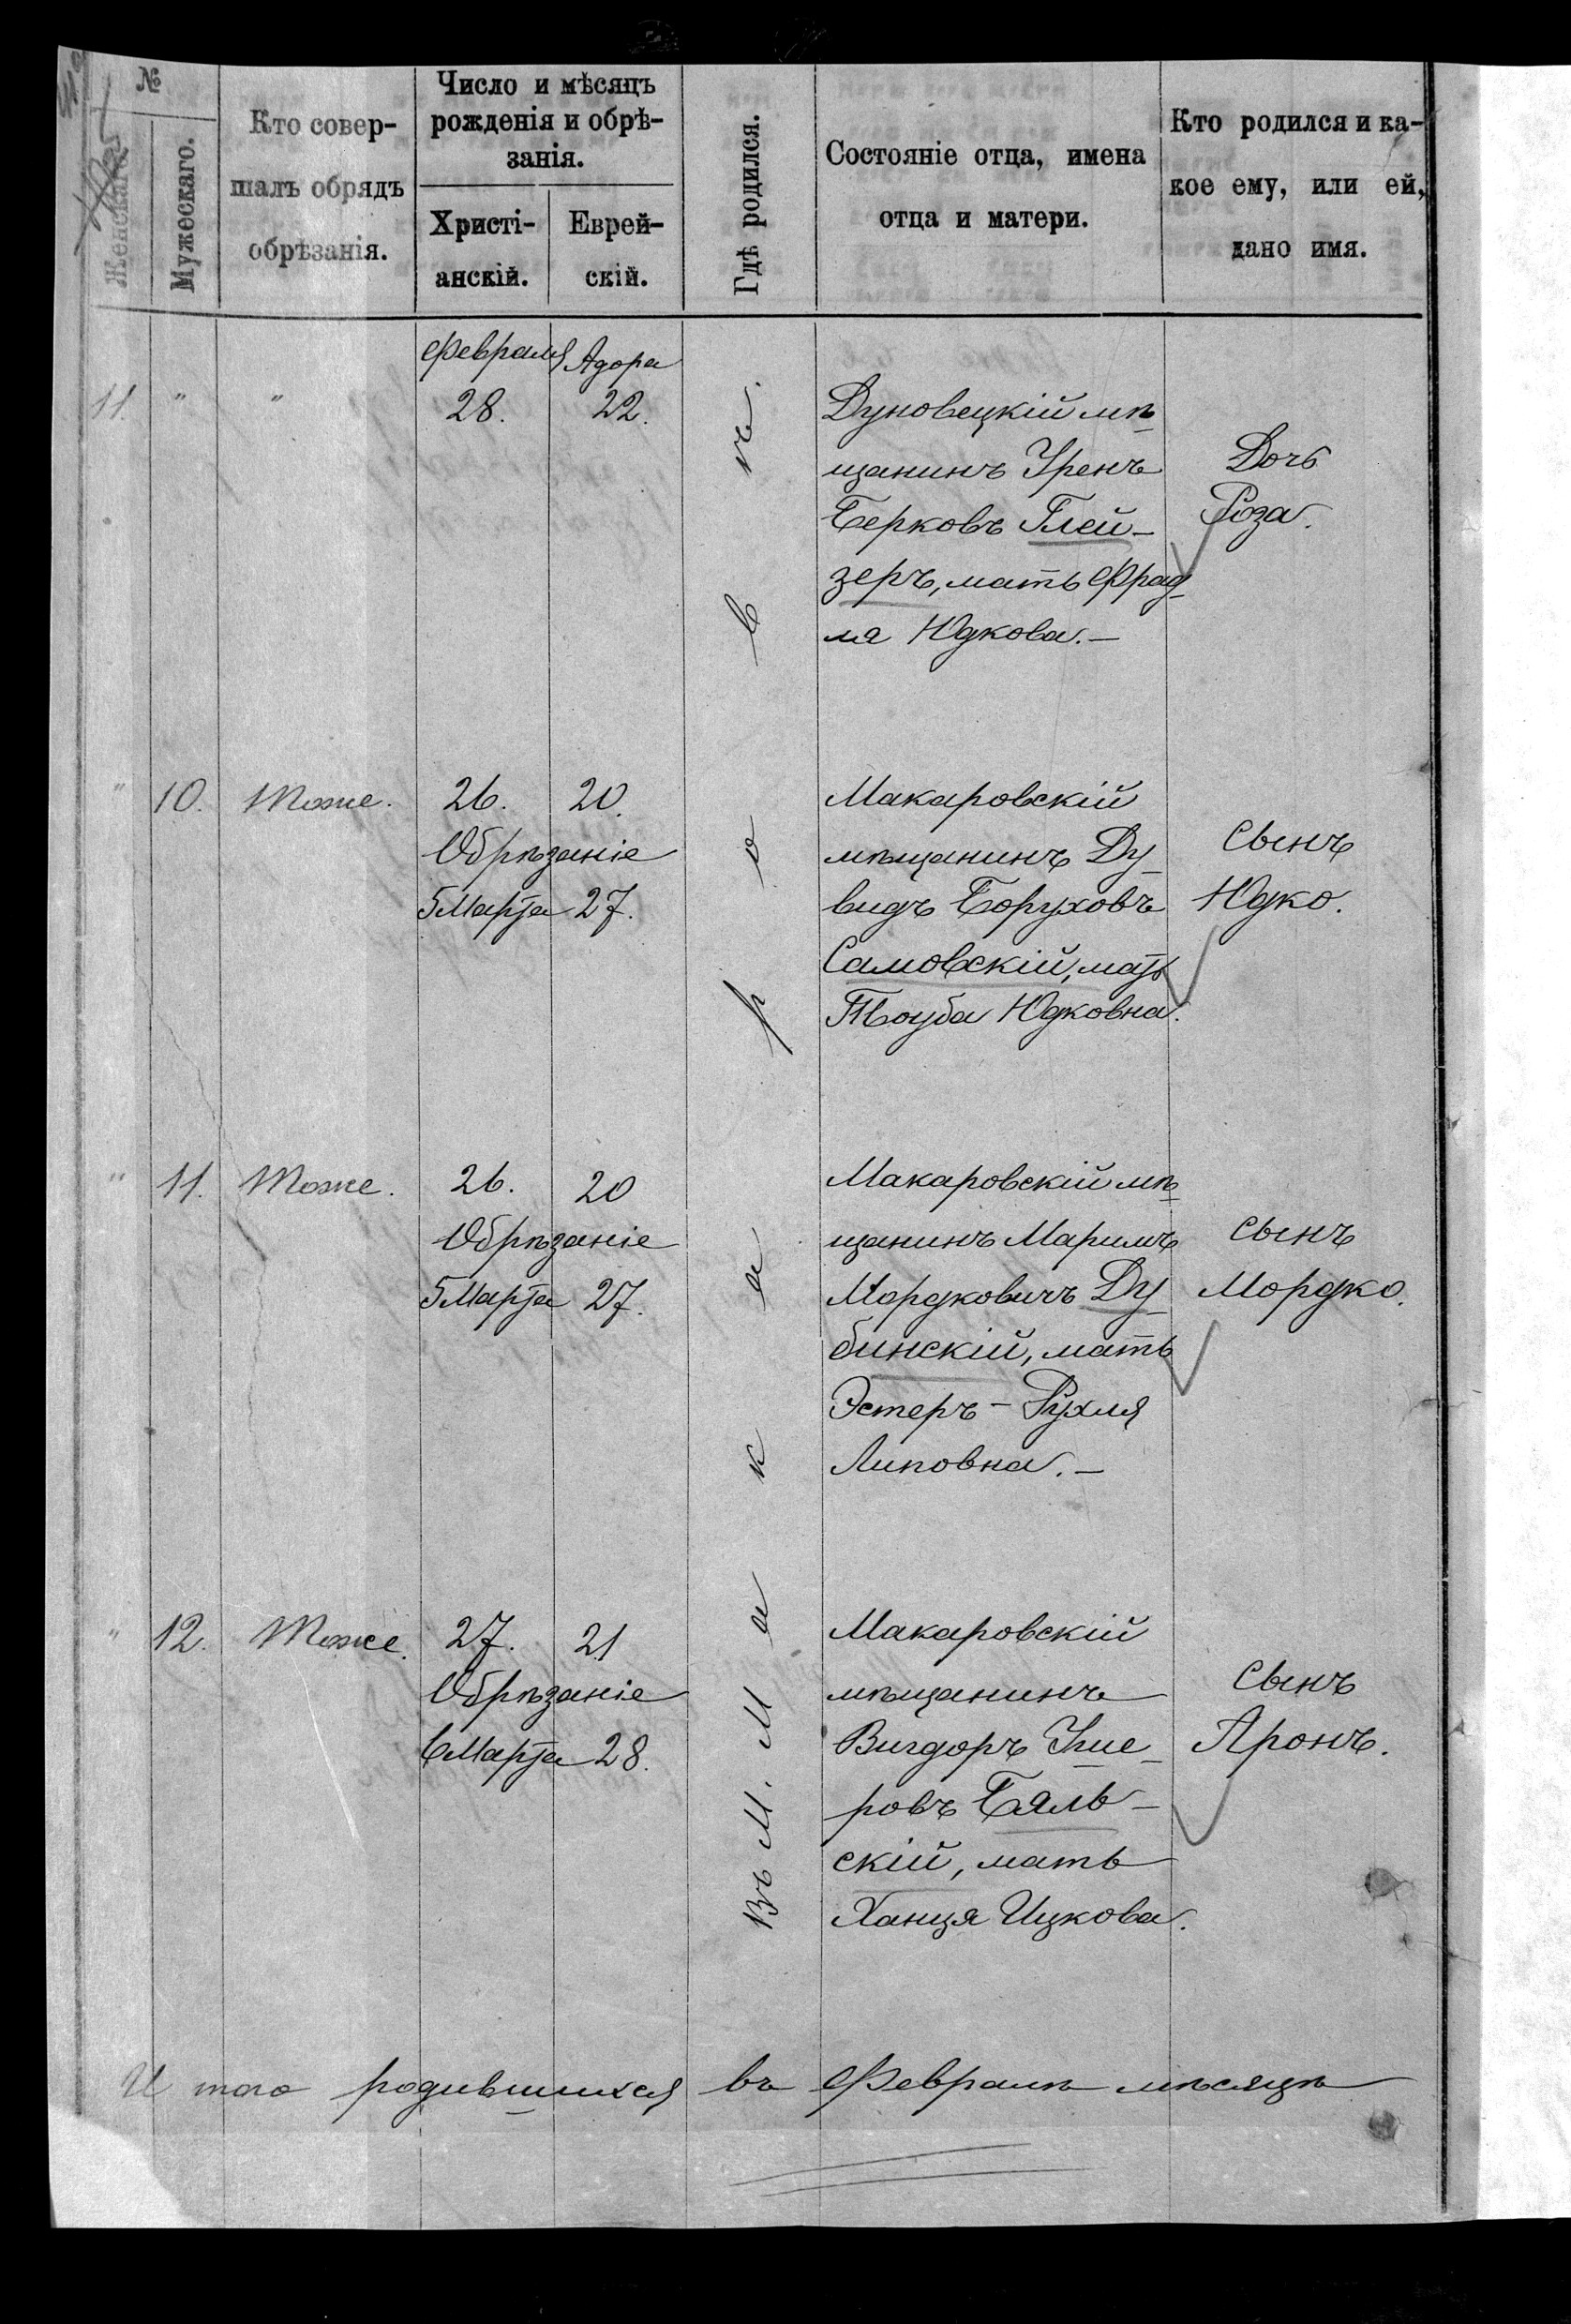 №
Женскаго.
Мужескаго.
Кто совер-
шалъ обрядъ
обрѣзанія.
Число и мѣсяцъ
рожденія и обрѣ-
занія.
Христі-
анскій.
Еврей-
скій.
Гдѣ родился.
Состояніе отца, имена
отца и матери.
Кто родился и ка-
кое ему, или ей,
дано имя.
Въ М. Макаровъ.
Февраля Адора
11. " " 28. 22.
Дуновецкій мѣ
щанинъ Уренъ
Берковъ Глей-
зеръ, мать Фрад
ля Юдкова.-
Дочь
Роза.
" 10. Тоже. 26. 20.
Обрѣзаніе
5 Марта 27.
Макаровскій
мѣщанинъ Ду
видъ Боруховъ
Самовскій, мать
Тоуба Юдковна.
Сынъ
Юдко.
" 11. Тоже. 26. 20
Обрѣзаніе
5 Марта 27.
Макаровскій мѣ
щанинъ Маримъ
Мордковичъ Ду
бинскій, мать
Эстеръ-Рухля
Липовна.-
Сынъ
Мордко.
" 12. Тоже. 27. 21
Обрѣзаніе
6 Марта 28.
Макаровскій
мѣщанинъ
Вигдоръ
ровъ Бяль-
скій, мать
Ханця Ицкова.
Сынъ
Аронъ.
И того родившихся въ Февралѣ мѣсяцѣ